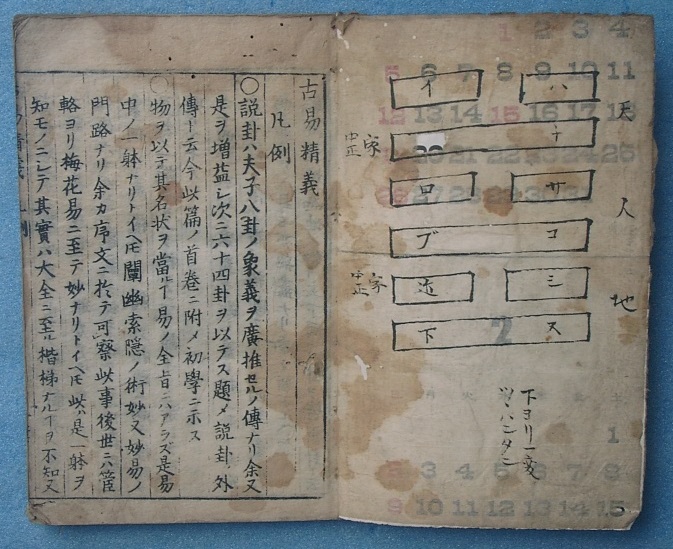 天
人
地
イ ハ
ナ
ロ サ
ブ コ
シ
下 ス
中正 家
中正 家
下ヨリ一変
古易精義
凡例
○説卦ハ夫子八卦ノ象義ヲ廣推セルノ傳ナリ余又
是ヲ増益シ次ニ六十四卦ヲ以テス題メ説卦外
傳ト云今此篇ノ首巻ニ附メ初學ニ示ス
○物ヲ以テ其名状ヲ當ルヿ易ノ全旨ニハアラズ是易
中ノ一躰ナリトイヘ𪜈闡幽索隠ノ術妙又妙易ノ
門路ナリ余カ序文ニ於テ可察此事後世ニハ
輅ヨリ梅花易ニ至テ妙ナリトイヘ𪜈此ハ是一躰ヲ
知モノニシテ其實ハ大全ニ至ル楷梯ナルヿヲ不知又
1 2 3 4
5 6 7 8 9 10 11
12 13 15
27 28
2
1
3 4 5 6 7 8
9 10 11 12 13 14 15